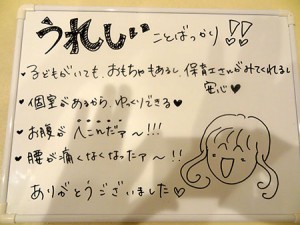 うれしい ことばっかり!!
・子どもがいても、おもちゃもあるし、保育士さんがみてくれるし
安心♥
・個室があるから、ゆっくりできる♥
・お腹がへこんだァ〜!!!
・腰が痛くなくなったァ〜!!
ありがとうございました♡